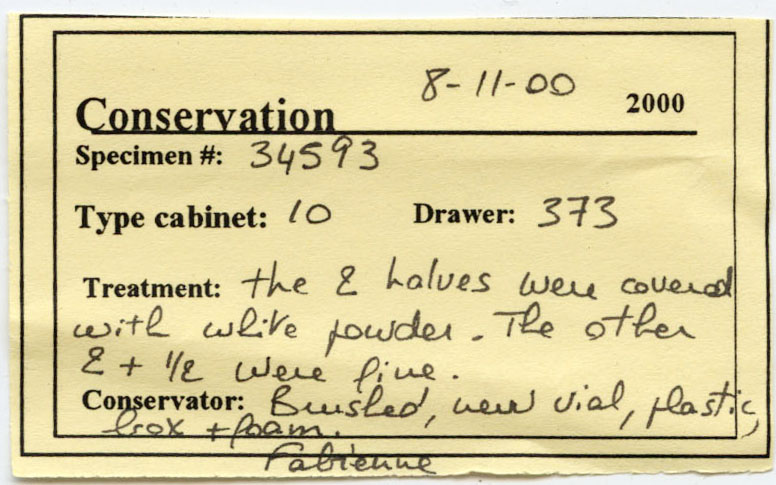 8-11-00 2000
Conservation
Specimen #: 34593
Type cabinet: 10 Drawer: 373
Treatment: the 2 halves were covered
with white powder. The other
2 + 1/2 were fine.
Conservator: Brushed, new vial, plastic,
box + foam.
Fabienne